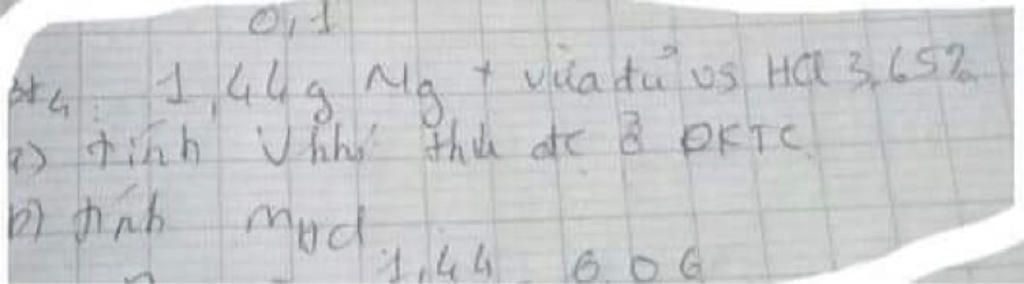 0,1
bt4: 1,44g Mg + vừa đủ vs HCl 3,65%
a) tính Vkhí thu đc ở ĐKTC
b) tính mHCl
1,44 0.06